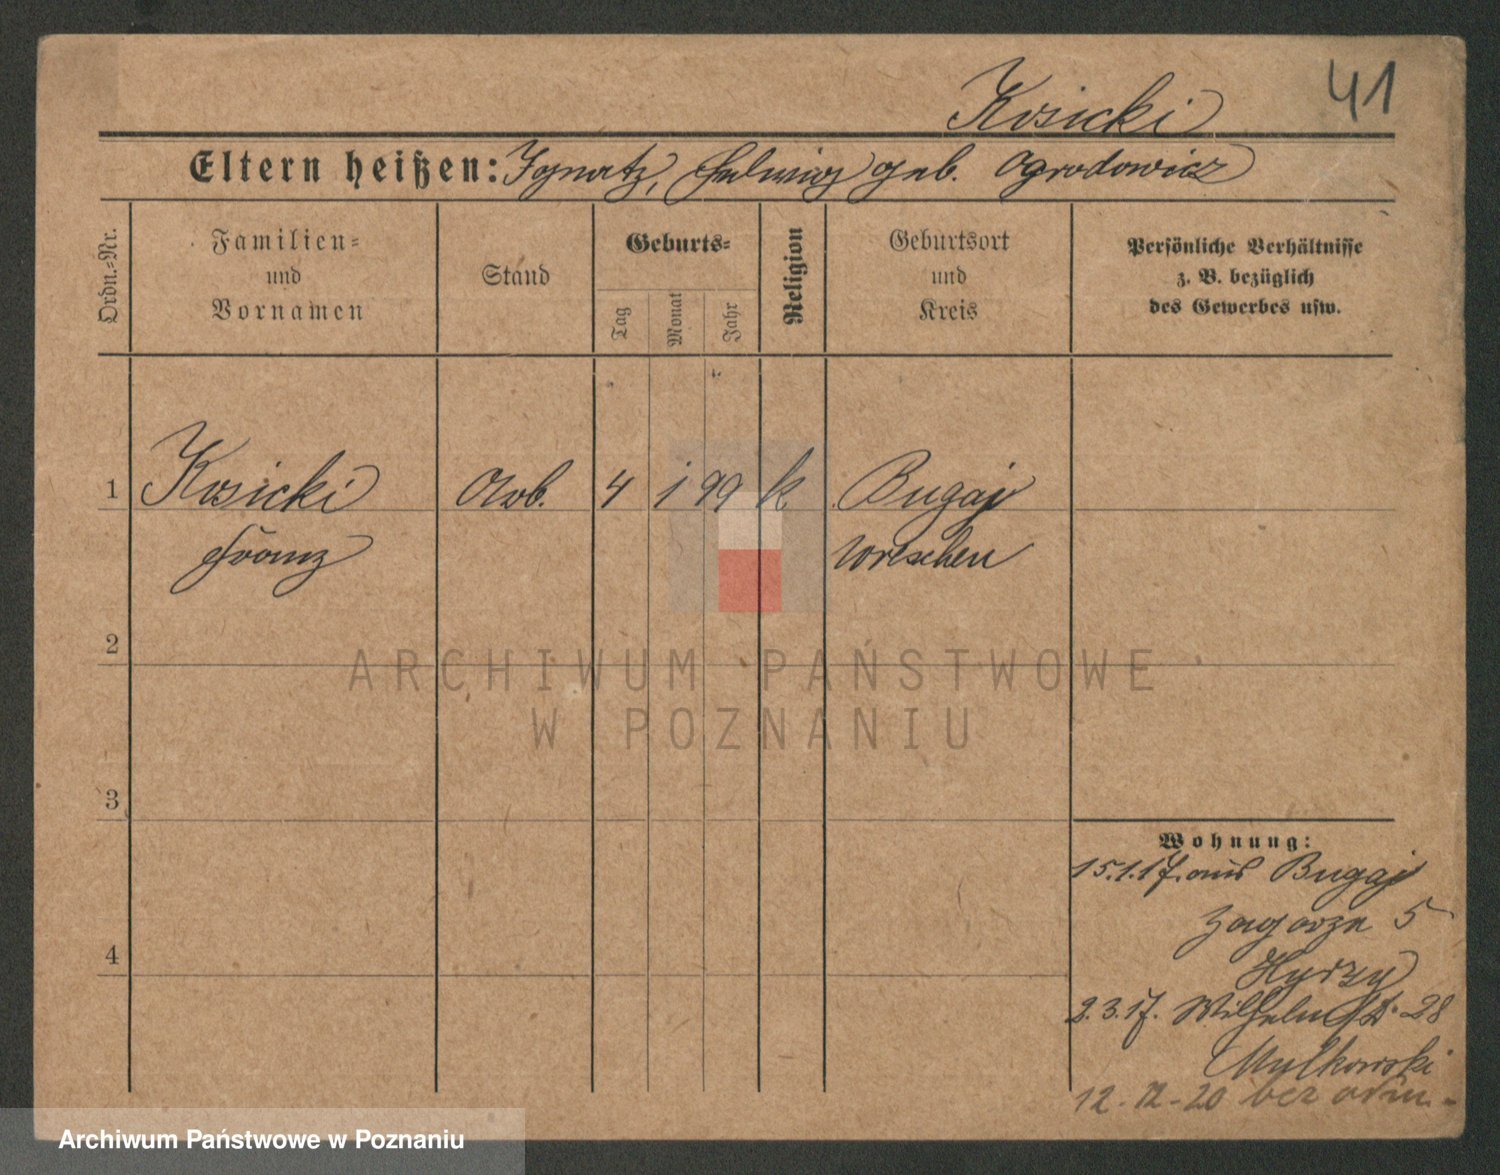 41
Kosicki
Eltern heißen: Ignatz, Hedwig geb. Ogrodowicz
Ordn.-Nr.
Familien-
und
Vornamen
Stand
Geburts-
Tag
Monat
Jahr
Religion
Geburtsort
und
Kreis
Persönliche Verhältnisse
z. B. bezüglich
des Gewerbes usw.
1 Kosicki Arb. 4 1 99 k Bugaj
Franz Wreschen
2
ARCHIWUM PAŃSTWOWE
W POZNANIU
3
Wohnung:
15.1.17. aus Bugaj
Zagorze 5
4
2.3.17. Wilhelmstr. 28
Mylkowski
12-12-20 bez
Archiwum Państwowe w Poznaniu